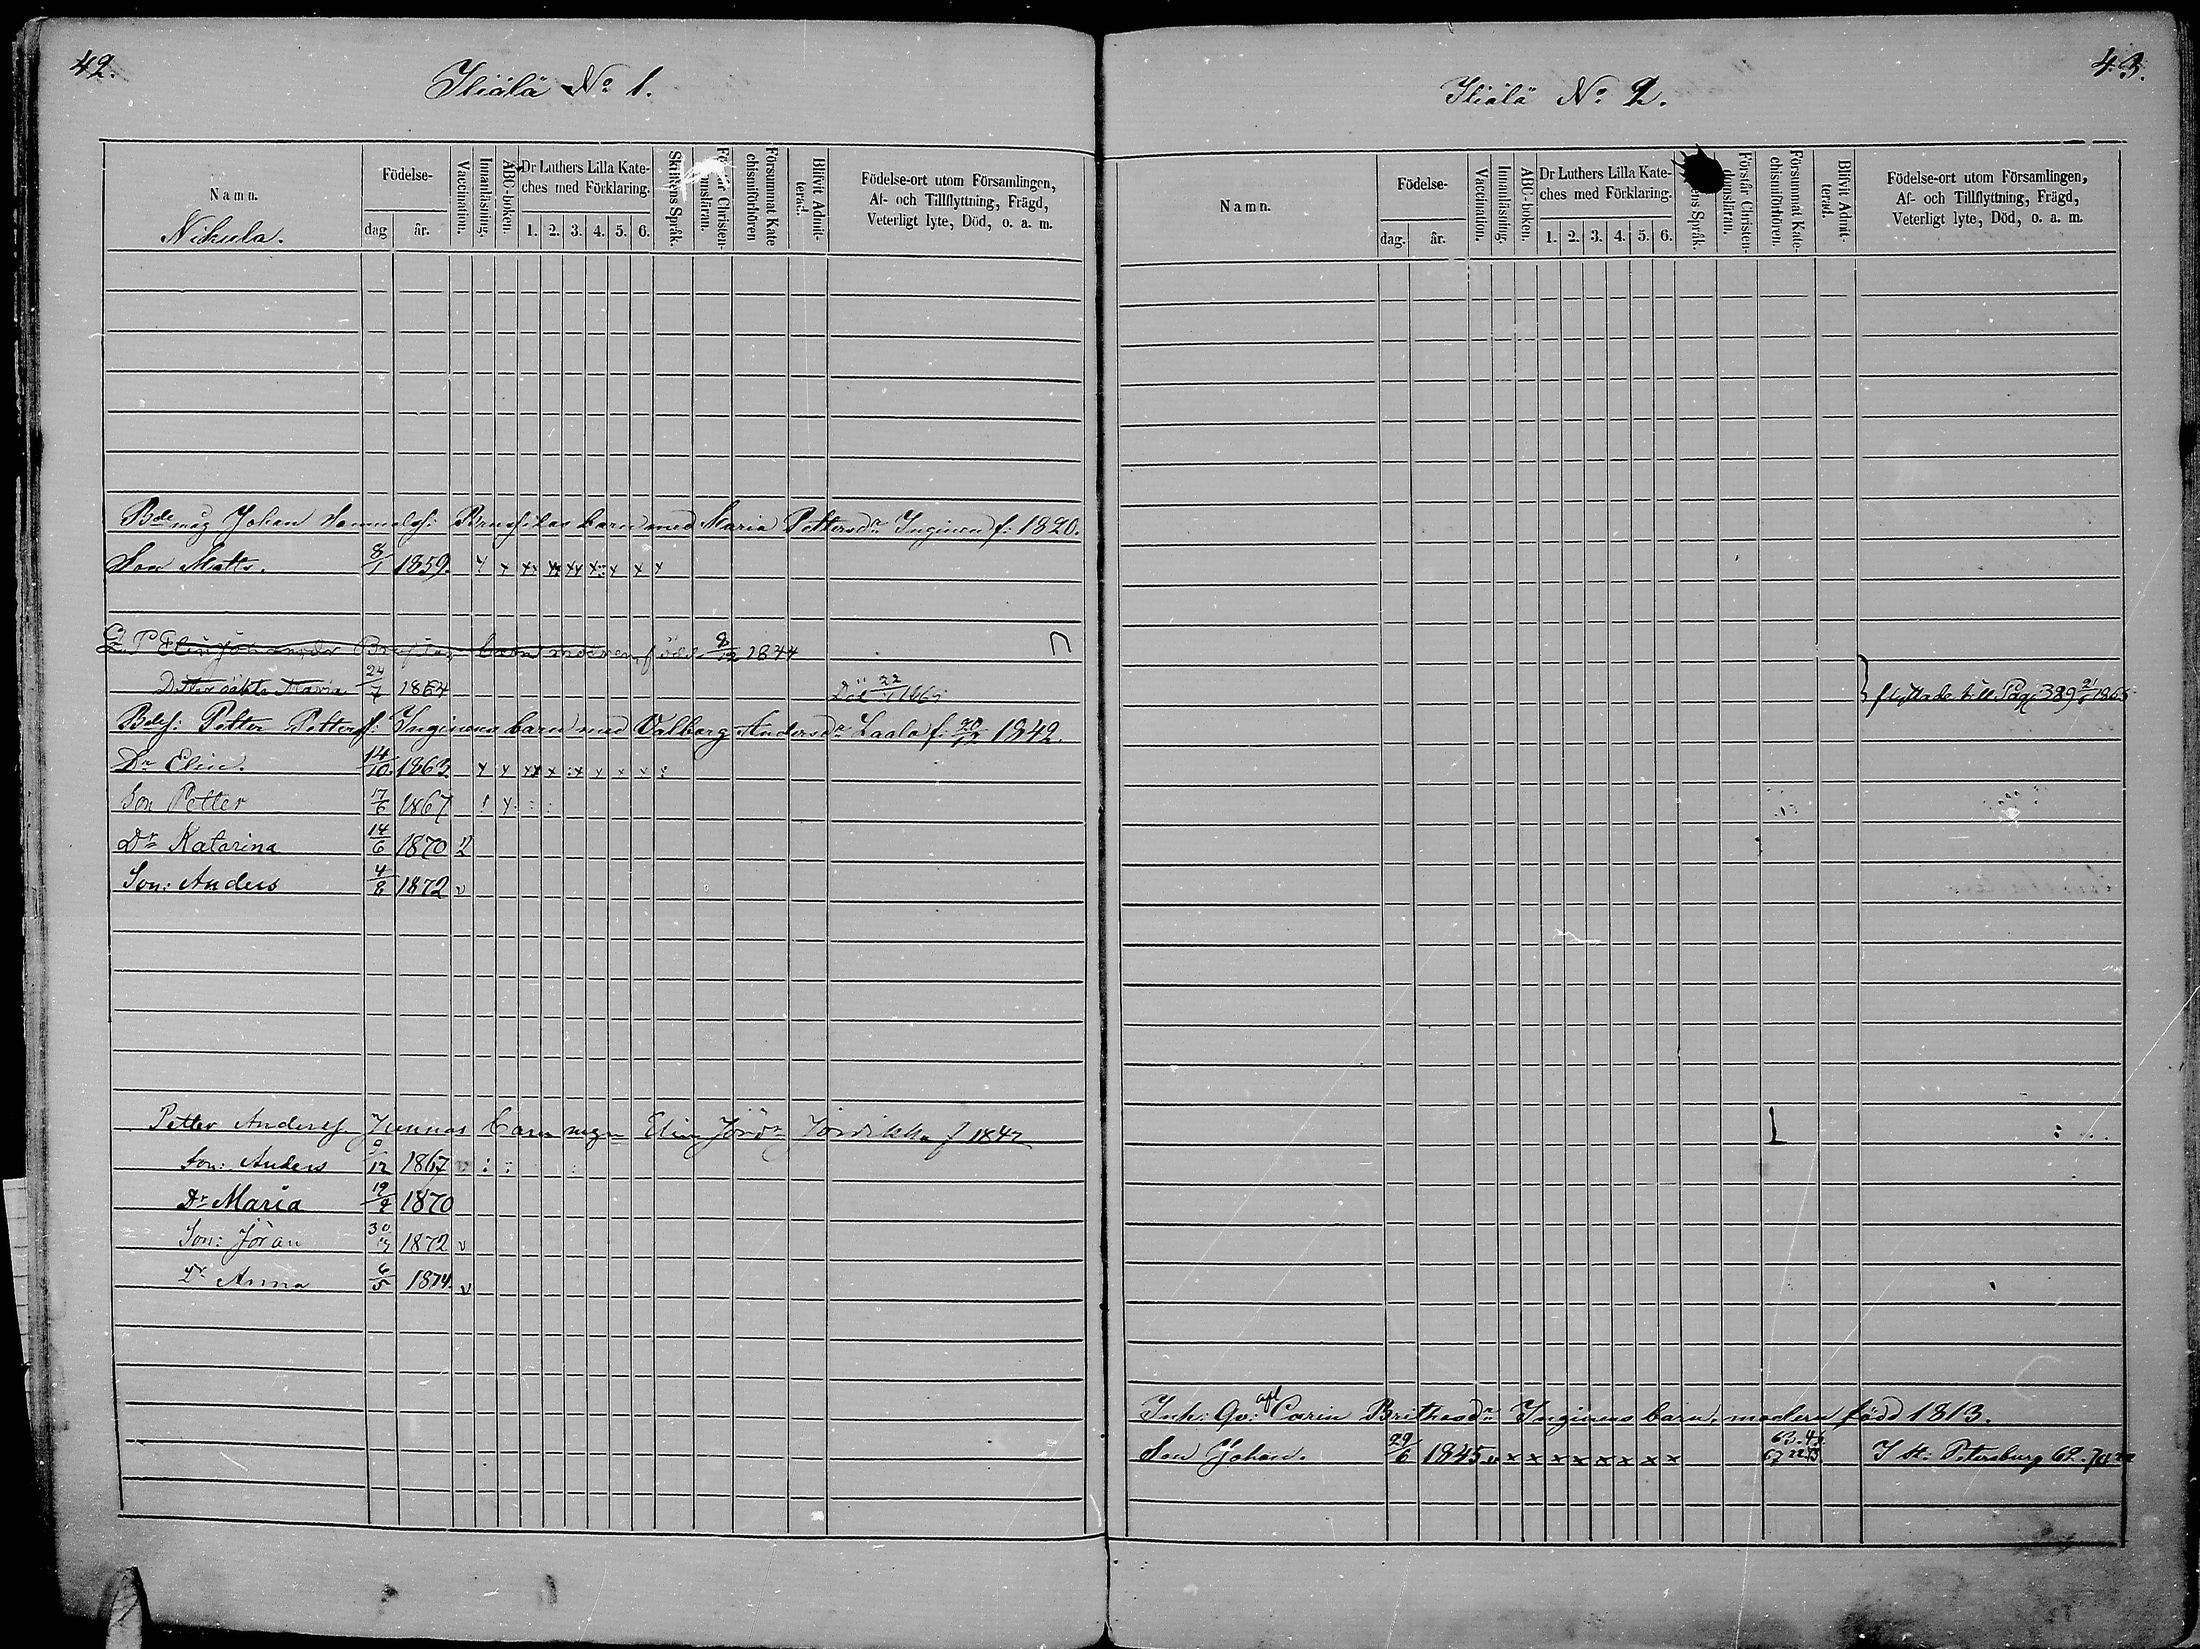 42.
Iliälä No 1.
Namn.
Nikula.
Födelse-
dag
år.
Vaccination.
Innanläsning.
ABC-boken.
Dr Luthers Lilla Kate-
ches med Förklaring.
1. 2. 3. 4. 5. 6.
Skriftens Språk.
Förstår Christen-
domsläran.
Försummat Kate
chismiförhören
Blifvit Admit-
terad.
Födelse-ort utom Församlingen,
Af- och Tillflyttning, Frägd,
Veterligt lyte, Död, o. a. m.
Johan barn med Maria Pettersdr Inginen f: 1820.
Son Matts. 8/1 1859.
född 8/12 1844
Maria 24/7 1864 Död 22/
Petter Petters: Inginens barn med Valborg Andersdr Laala f: 1842.
Dr Elin. 14/10 1863
Son Petter 17/6 1867
Dr Katarina 14/6 1870
Son: Anders 4/8 1872 v
Petter Junnas barn Elin Jör:dr f 1847
Son: Anders 9/12 1867
Dr Maria 1870
Son: Jöran 30/ 1872 v
Dr Anna 6/5 1874. v
43.
Iliälä No 2.
Namn.
Födelse-
dag.
år.
Vaccination.
Innanläsning.
ABC-boken.
Dr Luthers Lilla Kate-
ches med Förklaring.
1. 2. 3. 4. 5. 6.
ens Språk.
Förstår Christen-
domsläran.
Försummat Kate-
chismiförhören.
Blifvit Admit-
terad.
Födelse-ort utom Församlingen,
Af- och Tillflyttning, Frägd,
Veterligt lyte, Död, o. a. m.
flyttade till Pag: 389
Inh: Qv: afl Carin Inginens barn, modern född 1813.
Son Johan. 29/6 1845 v x x x x x x x x I St: Petersburg 62.